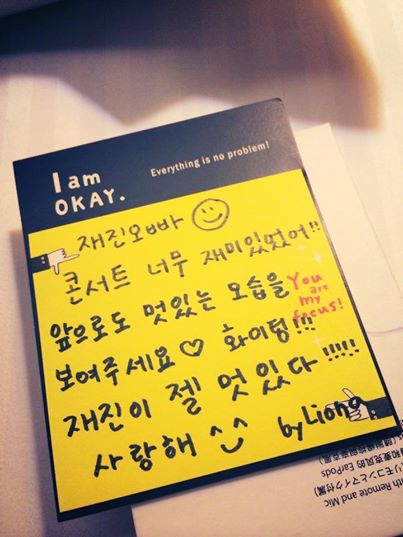 I am
OKAY.
Everything is no problem!
재진오빠
콘서트 너무 재미있었어!!
앞으로도 멋있는 모습을
You
are
my
focus!
보여주세요♡ 화이팅!!!
재진이 젤 멋있다!!!!!
사랑해 ^^ by Liong
with Remote and Mic
リモコンとマイク付属)
EarPods